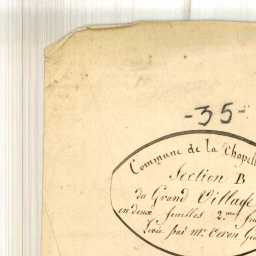 -35-
Commune de la Chapell
Section B
du Grand Village
en deux feuilles 2.me feu
Levée par Mr. Ge